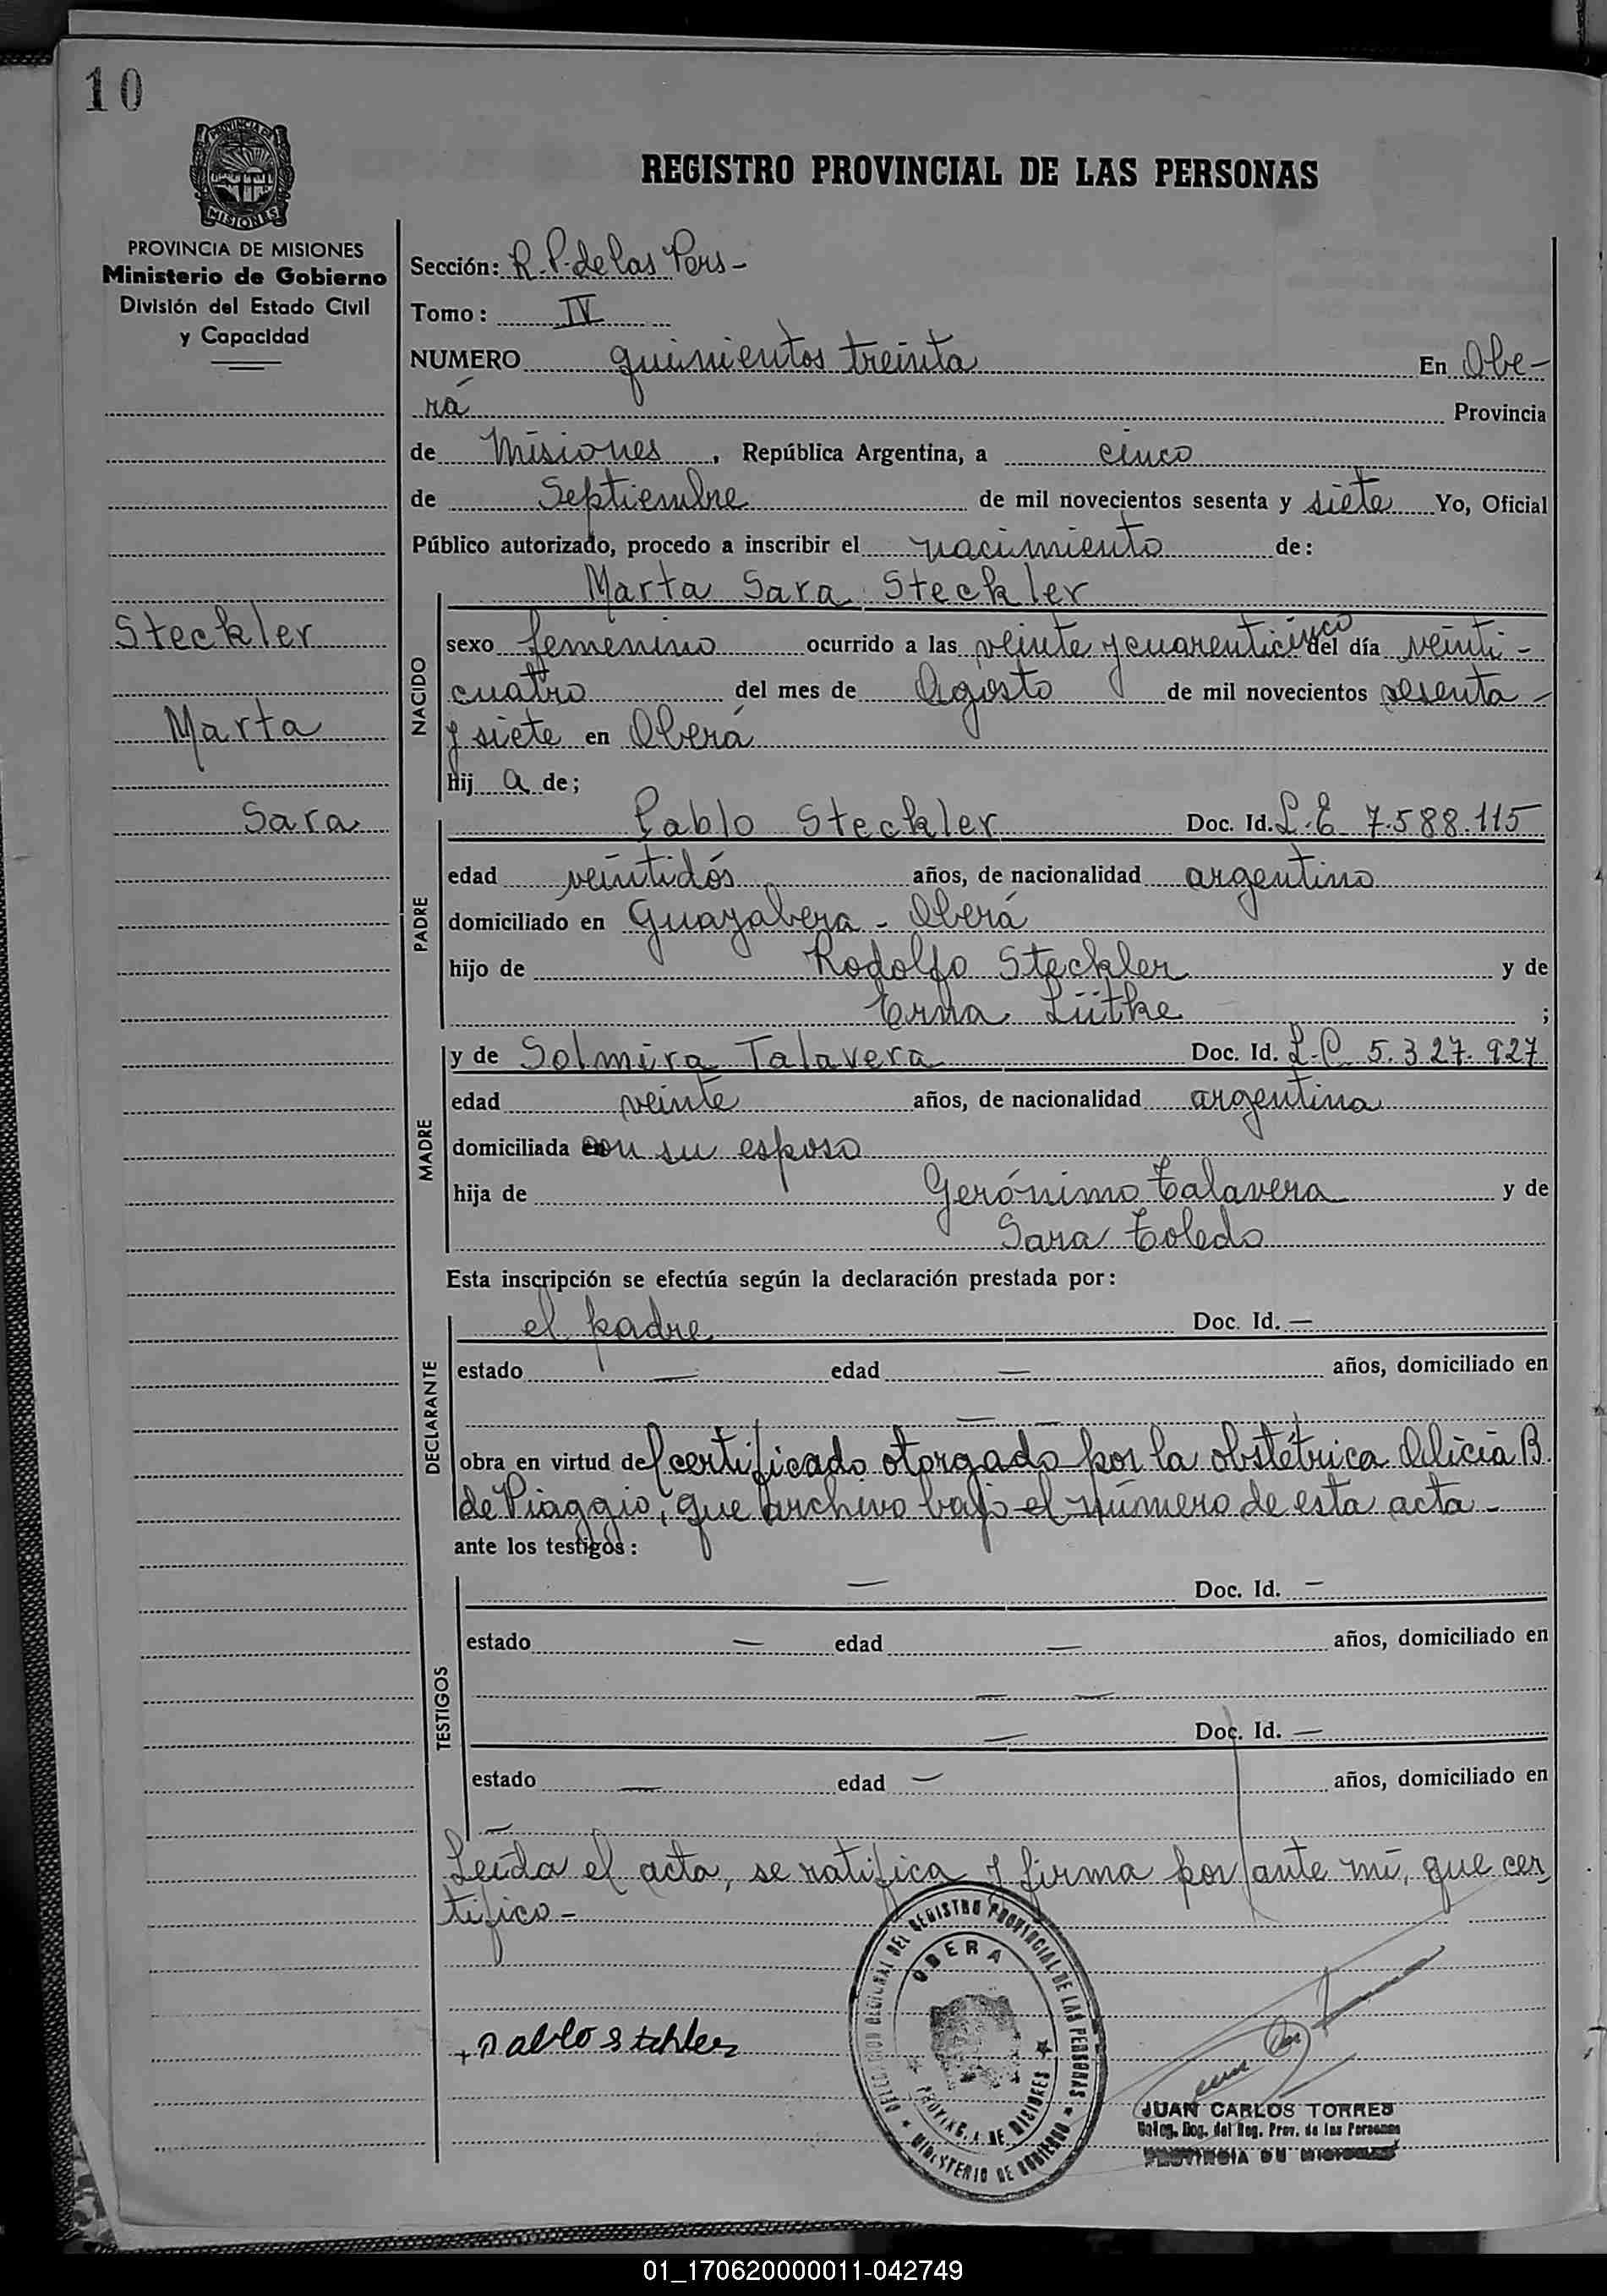 10
PROVINCIA DE
MISIONES
REGISTRO PROVINCIAL DE LAS PERSONAS
PROVINCIA DE MISIONES
Ministerio de Gobierno
División del Estado Civil
y Capacidad
Steckler
Marta
Sara
Sección: R. P. de las Pers-
Tomo: IV
NUMERO quinientos treinta En Obe-
rá Provincia
de Misiones, República Argentina, a cinco
de Septiembre de mil novecientos sesenta y siete Yo, Oficial
Público autorizado, procedo a inscribir el nacimiento de:
Marta Sara Steckler
NACIDO
sexo femenino ocurrido a las veinte y cuarenticinco del día veinti-
cuatro del mes de Agosto de mil novecientos sesenta-
y siete en Oberá
hij a de;
PADRE
Pablo Steckler Doc. Id. L.E. 7.588.115
edad veintidós años, de nacionalidad argentino
domiciliado en Guayabera - Oberá
hijo de Rodolfo Steckler y de
Erna Lütke ;
MADRE
y de Solmira Talavera Doc. Id. L.C. 5.327.927
edad veinte años, de nacionalidad argentina
domiciliada con su esposo
hija de Gerónimo Talavera y de
Sara Toledo
Esta inscripción se efectúa según la declaración prestada por:
DECLARANTE
el padre Doc. Id. —
estado — edad — años, domiciliado en
— —
obra en virtud del certificado otorgado por la obstétrica Alicia B.
de Piaggio, que archivo bajo el número de esta acta-
ante los testigos:
TESTIGOS
— Doc. Id. —
estado — edad — años, domiciliado en
— —
— Doc. Id. —
estado — edad — años, domiciliado en
—
Leída el acta, se ratifica y firma por ante mí, que cer
tifico-
DELEGACION REGIONAL DEL REGISTRO PROVINCIAL DE LAS PERSONAS
OBERA
PROVINCIA DE MISIONES
MINISTERIO DE GOBIERNO
+ Pablo Stehler
JUAN CARLOS TORRES
Reg. Prov. de las Personas
PROVINCIA DE MISIONES
01_170620000011-042749